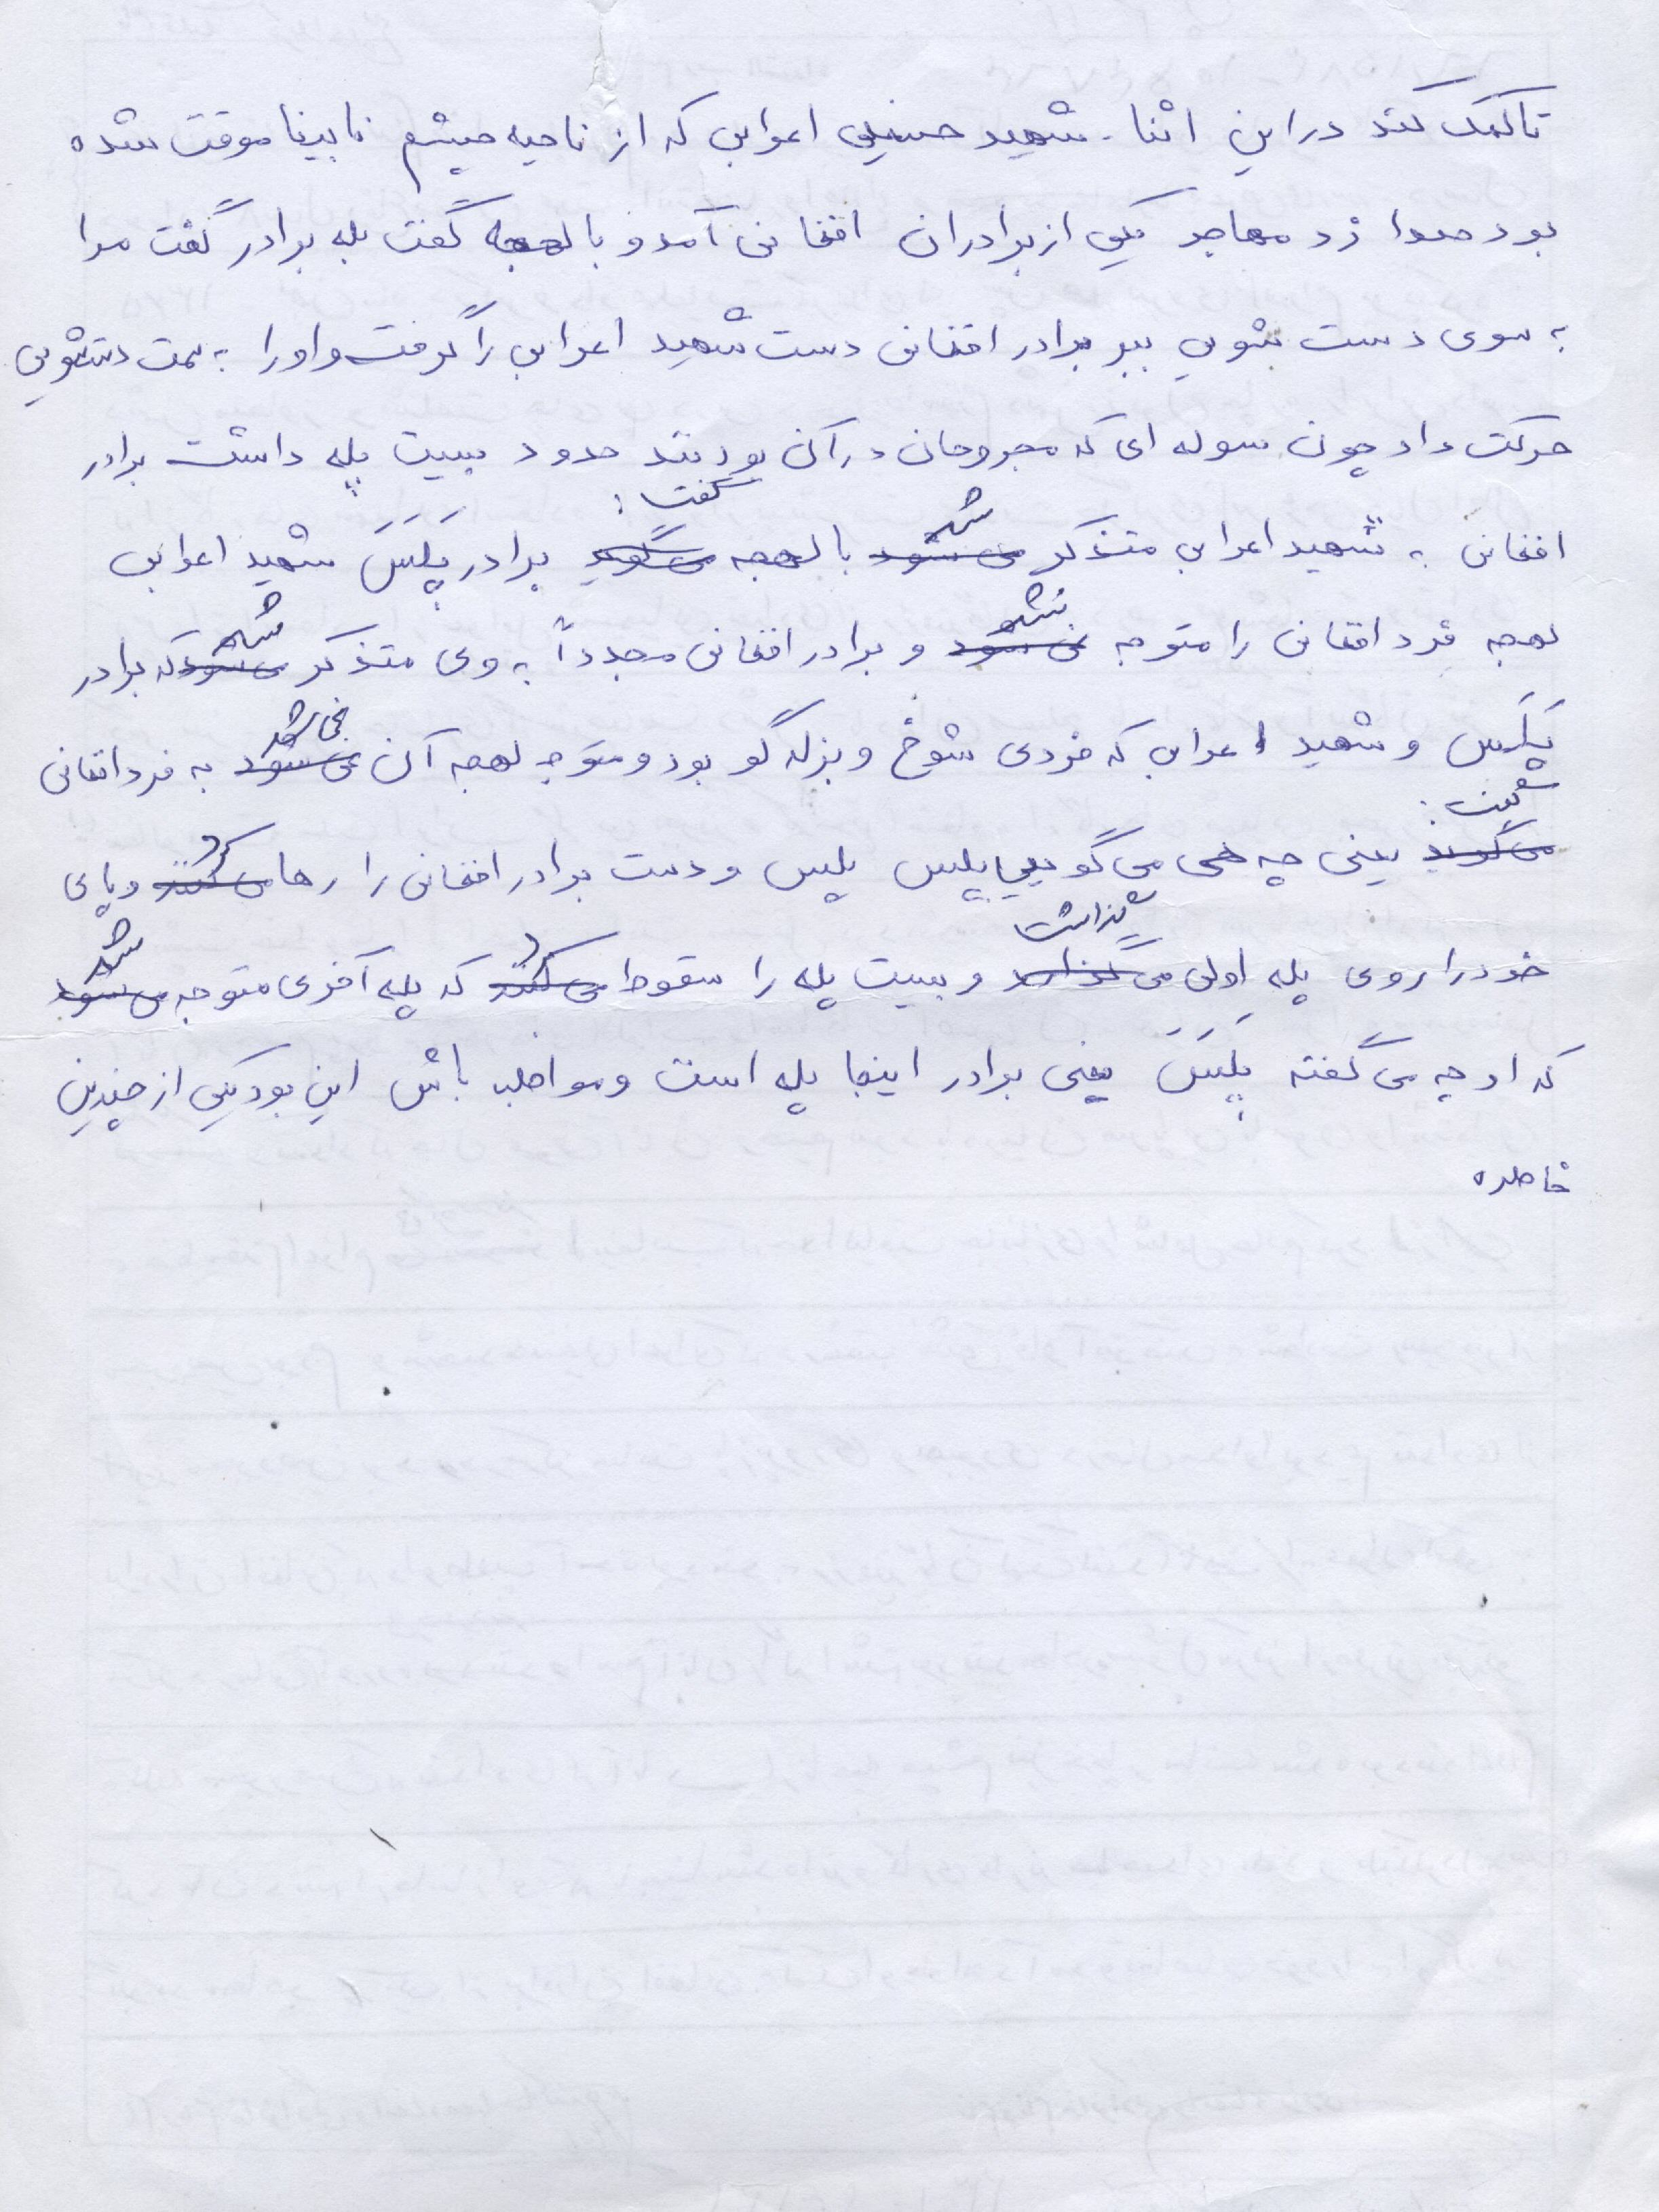 تا کمک کند در این اثنا. شهید حسین اعرابی که از ناحیه چشم نابینا موقت شده
بود صدا زد مهاجر یکی از برادران افغانی آمد و با لهجه گفت بله برادر گفت مرا
به سوی دست شویی ببر برادر افغانی دست شهید اعرابی را گرفت و او را به سمت دستشویی
حرکت داد چون سوله ای که مجروحان در آن بودند حدود بیست پله داشت برادر
افغانی به شهید اعرابی متذکر می شود شد با لهجه می گوید گفت: برادر پَلِسَ شهید اعرابی
لهجه فرد افغانی را متوجه نمی شود نشد و برادر افغانی مجدداً به وی متذکر می شود شد که برادر
پَلَس و شهید اعرابی که فردی شوخ و بزله گو بود و متوجه لهجه آن نمی شود نمی شد به فرد افغانی
می گوید گفت: یعنی چه هی می گویی پلس پلس و دست برادر افغانی را رها می کند کرد و پای
خود را روی پله اولی می گذارد گذاشت و بیست پله را سقوط می کند کرد که پله آخری متوجه می شود شد
که او چه می گفته پَلِسَ یعنی برادر اینجا پله است و مواظب باش این بود یکی از چندین
خاطره